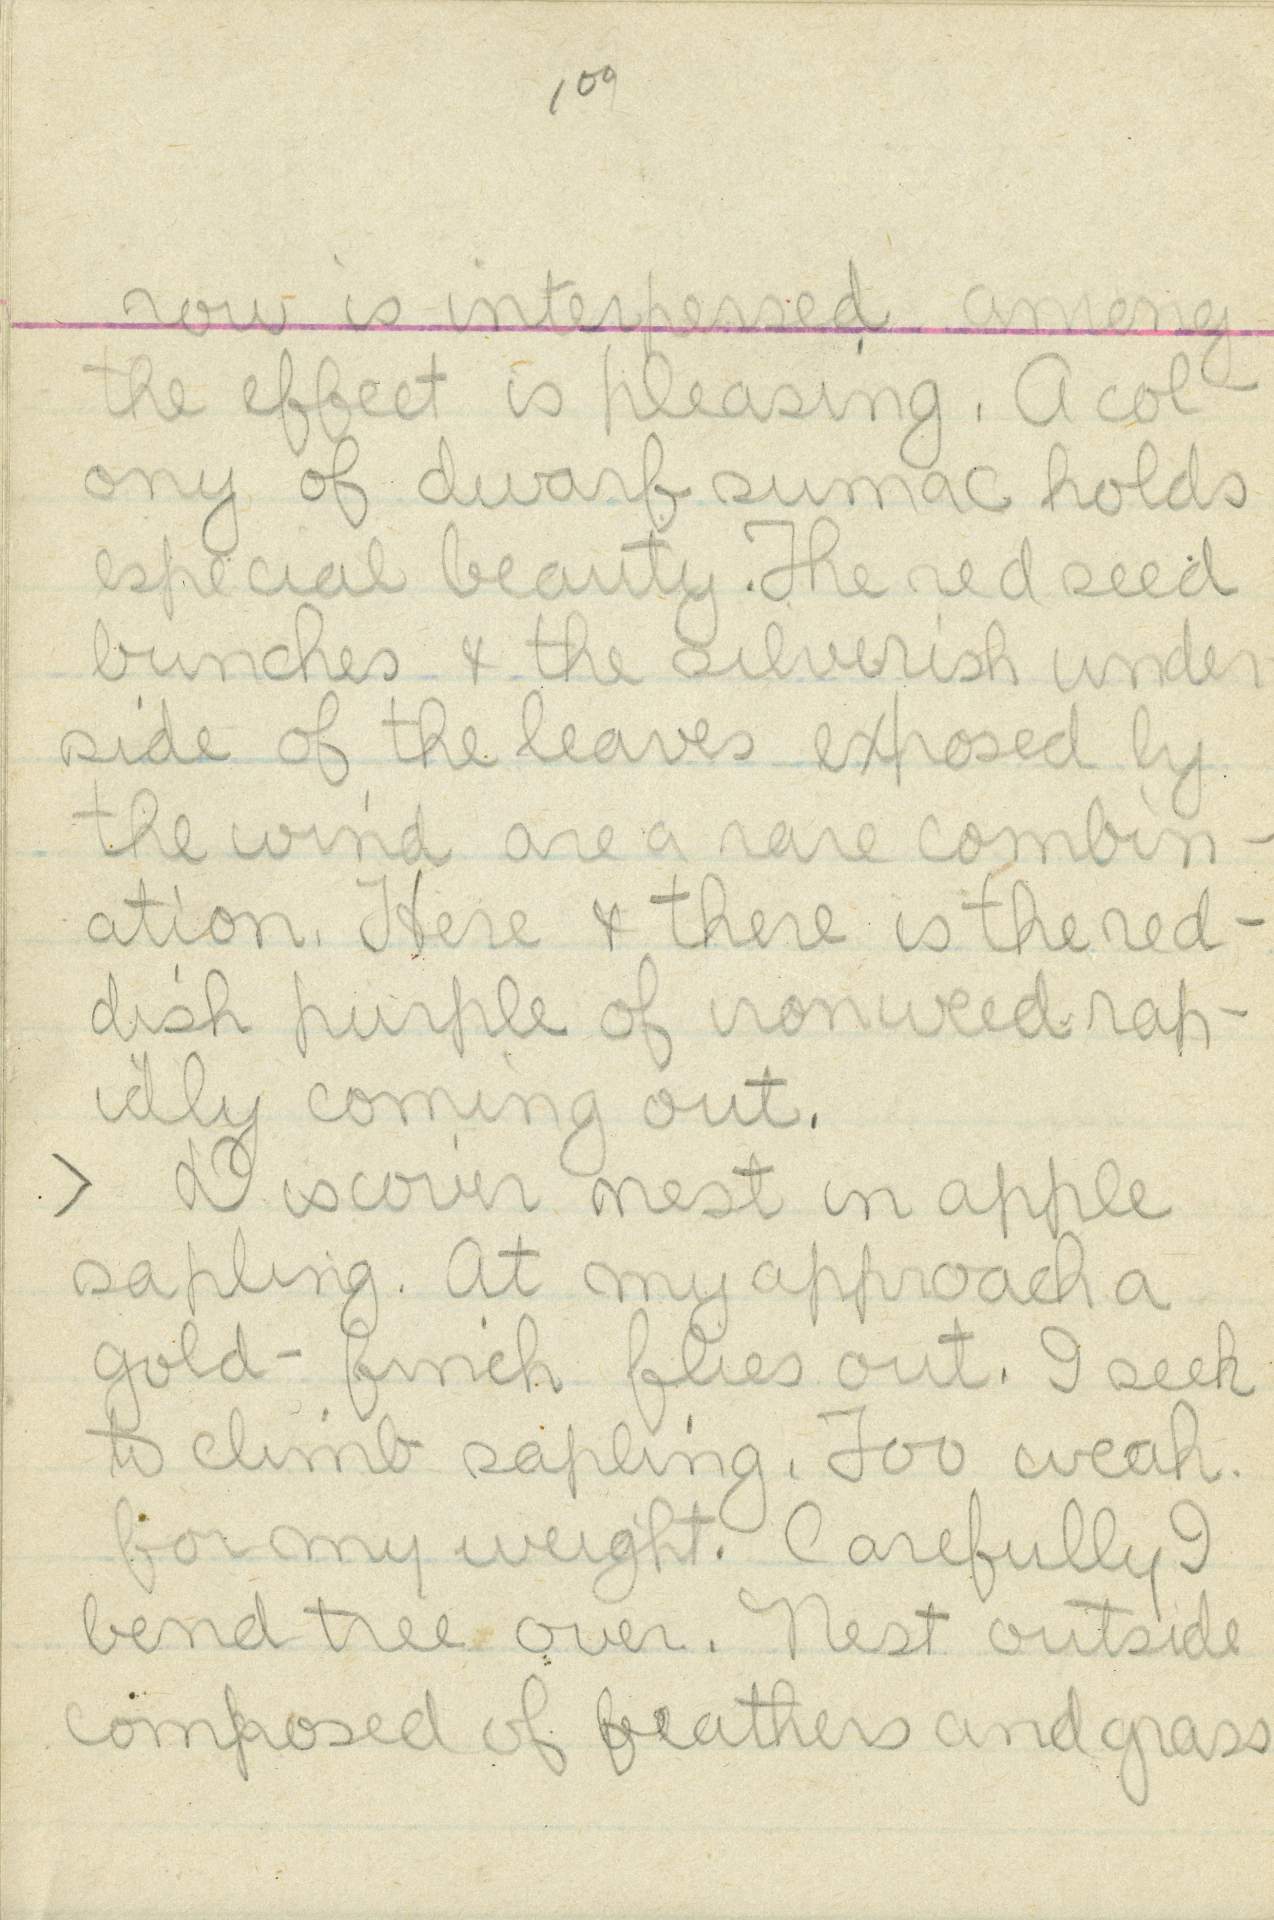 109
row is interpersed among
the effect is pleasing. A col-
ony of dwarf sumac holds
especial beauty. The red seed
bunches & the silverish under
side of the leaves exposed by
the wind are a rare combin-
ation. Here & there is the red-
dish purple of ironweed rap-
idly coming out.
> Discover nest in apple
sapling. At my approach a
gold-finch flies out. I seek
to climb sapling. Too weak
for my weight. Carefully I
bend tree over. Nest outside
composed of feathers and grass